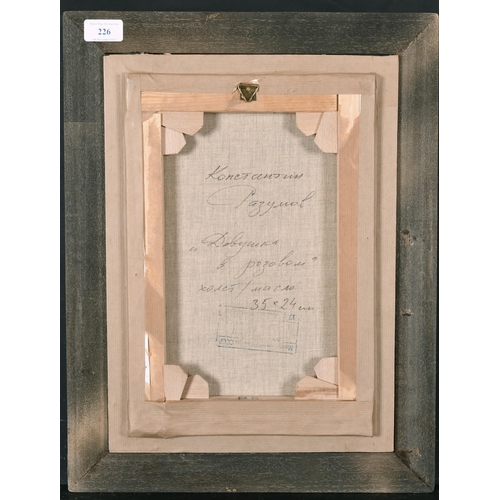 226
Константин
Разумов
„Девушка
в розовом"
холст / масло
35 × 24 см